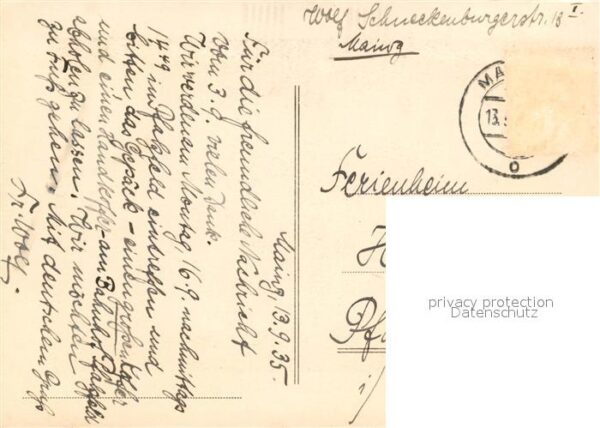 Wolf Schneckenburgerstr. 13 I.
Mainz
MA
13.
Ferienheim
H
Pf
i/
privacy protection
Datenschutz
Mainz, 13.9.35.
Für die freundliche Nachricht
vom 3.9. vielen Dank.
Wir werden am Montag 16.9. nachmittags
14⁴⁹ in Pfalzfeld eintreffen und
bitten das Gepäck – einen großen Koffer
und einen Handkoffer – am Bahnhof Pfalzfeld
abholen zu lassen. Wir möchten
zu Fuß gehen. Mit deutschem Gruß
Fr. Wolf.